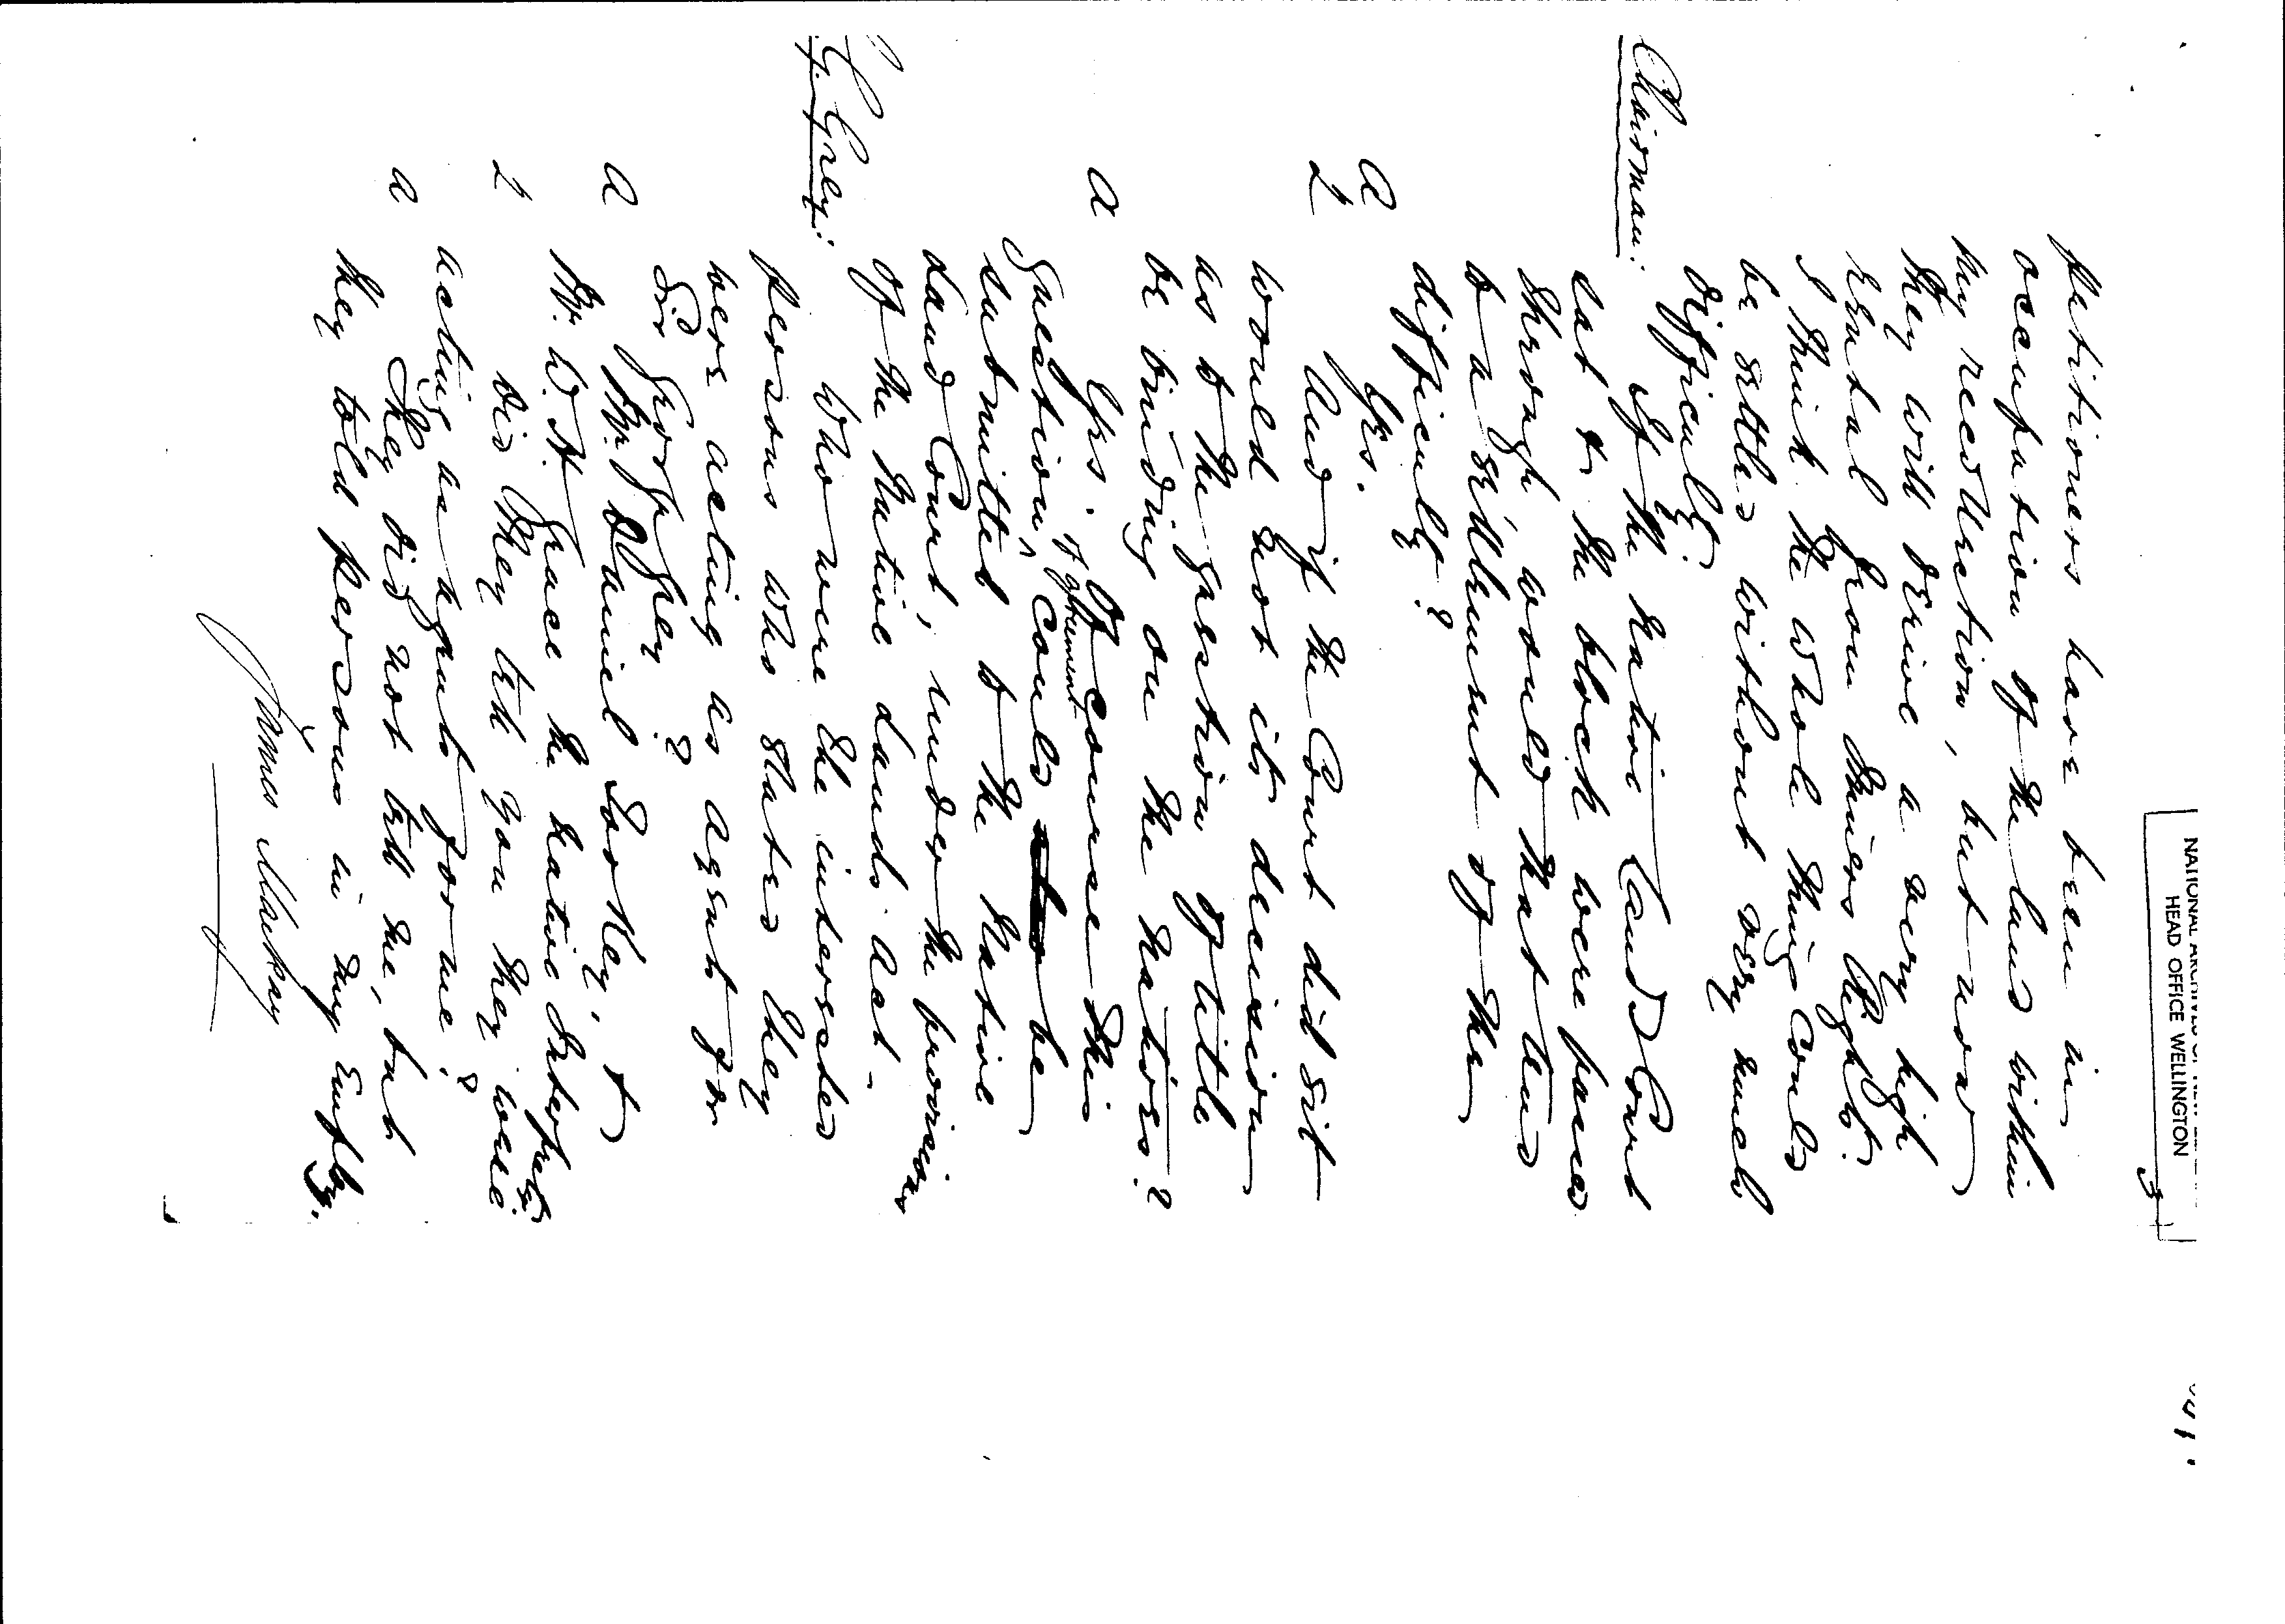 NATIONAL ARCHIVES OF NEW
HEAD OFFICE WELLINGTON
petitioners have been in
occupation of the land within
my recollection, but now
they will derive a very high
rental from Miners Rights.
I think the whole thing could
be settled without very much
difficulty.
Chairman: If the Native Land Court
sat & the block were passed
through would that tend
to a settlement of the
difficulty?
A Yes.
Q And if the Court did sit
would not its decision
as to the question of title
be binding on the Natives?
A Yes. Of course this
question, of agreement could be
submitted to the Native
Land Court, under the provisions
of the Native Lands Act.
G. Grey: Who were the interested
persons who stated they
were acting as agent for
Sir George Grey?
A Mr. Daniel Sorkley, &
Mr. W. H. Grace the native Interpreter.
Q Did they tell you they were
acting as agents for me?
A They did not tell me, but
they told persons in my employ.
James Mackay